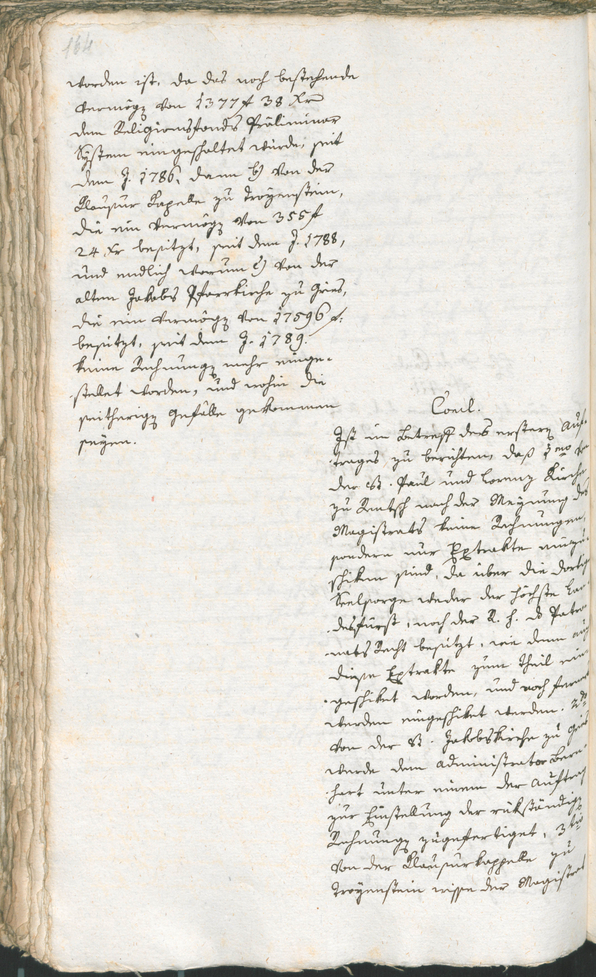 164
worden ist, da das noch bestehende
Vermög von 1377 f 38 Xr
dem Religionsfonds Präliminar
System eingeschaltet wurde, seit
dem J. 1786, dann b) von der
Klausur Kapelle zu Troyenstein,
die ein Vermög von 355 f
24 Xr besitzt, seit dem J. 1788,
und endlich warum c) von der
alten Jakobs Pfarrkirche zu Gries,
die ein Vermög von 17596 f.
besitzt, seit dem J. 1789.
keine Rechnung mehr einge-
stellet worden, und wohin die
seitherige Gefälle gekommen
seyen.
Concil.
Ist in Betreff des erstern Auf-
trages zu berichten, daß 1mo
der St. Paul und Lorenz Kirche
zu Rentsch nach der Meynung des
Magistrats keine Rechnungen,
sondern nur Extrakte einzu-
schiken sind, da über die dortige
Seelsorge weder der höchste Lan-
desfürst, noch der R. f. das Patro-
nats Recht besitzt, wie dann auch
diese Extrakte zum Theil ein-
geschiket worden, und noch ferner
werden eingeschiket werden. 2do
von der St. Jakobskirche zu Gries
wurde dem Administrator Bern-
hart unter einem der Auftrag
zur Einstellung der rükständigen
Rechnung zugefertiget, 3tio
von der Klausurkappelle zu
Troyenstein wisse der Magistrat